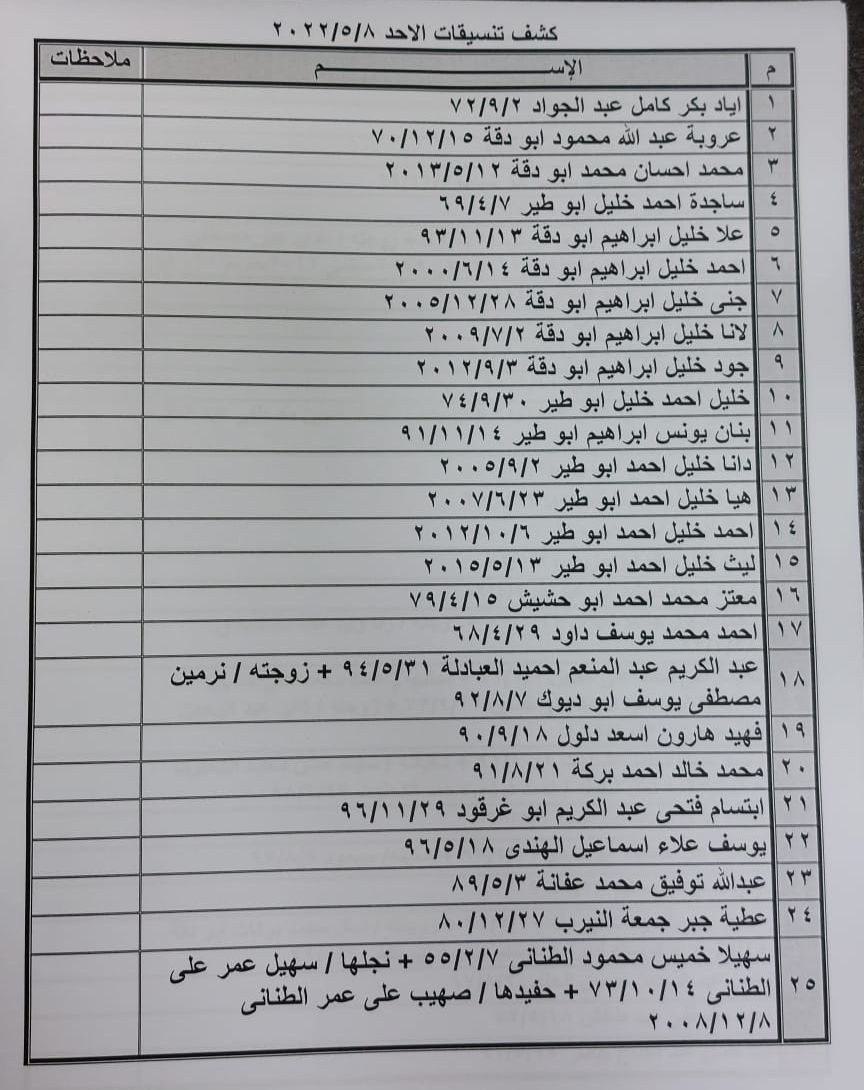 كشف تنسيقات الاحد ٢٠٢٢/٥/٨
م الإســــــــــــم ملاحظات
١ اياد بكر كامل عبد الجواد ٧٢/٩/٢
٢ عروبة عبد الله محمود ابو دقة ٧٠/١٢/١٥
٣ محمد احسان محمد ابو دقة ٢٠١٣/٥/١٢
٤ ساجدة احمد خليل ابو طير ٦٩/٤/٧
٥ علا خليل ابراهيم ابو دقة ٩٣/١١/١٣
٦ احمد خليل ابراهيم ابو دقة ٢٠٠٠/٦/١٤
٧ جنى خليل ابراهيم ابو دقة ٢٠٠٥/١٢/٢٨
٨ لانا خليل ابراهيم ابو دقة ٢٠٠٩/٧/٢
٩ جود خليل ابراهيم ابو دقة ٢٠١٢/٩/٣
١٠ خليل احمد خليل ابو طير ٧٤/٩/٣٠
١١ بنان يونس ابراهيم ابو طير ٩١/١١/١٤
١٢ دانا خليل احمد ابو طير ٢٠٠٥/٩/٢
١٣ هيا خليل احمد ابو طير ٢٠٠٧/٦/٢٣
١٤ احمد خليل احمد ابو طير ٢٠١٢/١٠/٦
١٥ ليث خليل احمد ابو طير ٢٠١٥/٥/١٣
١٦ معتز محمد احمد ابو حشيش ٧٩/٤/١٥
١٧ احمد محمد يوسف داود ٦٨/٤/٢٩
١٨ عبد الكريم عبد المنعم احميد العبادلة ٩٤/٥/٣١ + زوجته / نرمين
مصطفى يوسف ابو ديوك ٩٢/٨/٧
١٩ فهيد هارون اسعد دلول ٩٠/٩/١٨
٢٠ محمد خالد احمد بركة ٩١/٨/٢١
٢١ ابتسام فتحى عبد الكريم ابو غرقود ٩٦/١١/٢٩
٢٢ يوسف علاء اسماعيل الهندى ٩٦/٥/١٨
٢٣ عبدالله توفيق محمد عفانة ٨٩/٥/٣
٢٤ عطية جبر جمعة النيرب ٨٠/١٢/٢٧
٢٥ سهيلا خميس محمود الطنانى ٥٥/٢/٧ + نجلها / سهيل عمر على
الطنانى ٧٣/١٠/١٤ + حفيدها / صهيب على عمر الطنانى
٢٠٠٨/١٢/٨